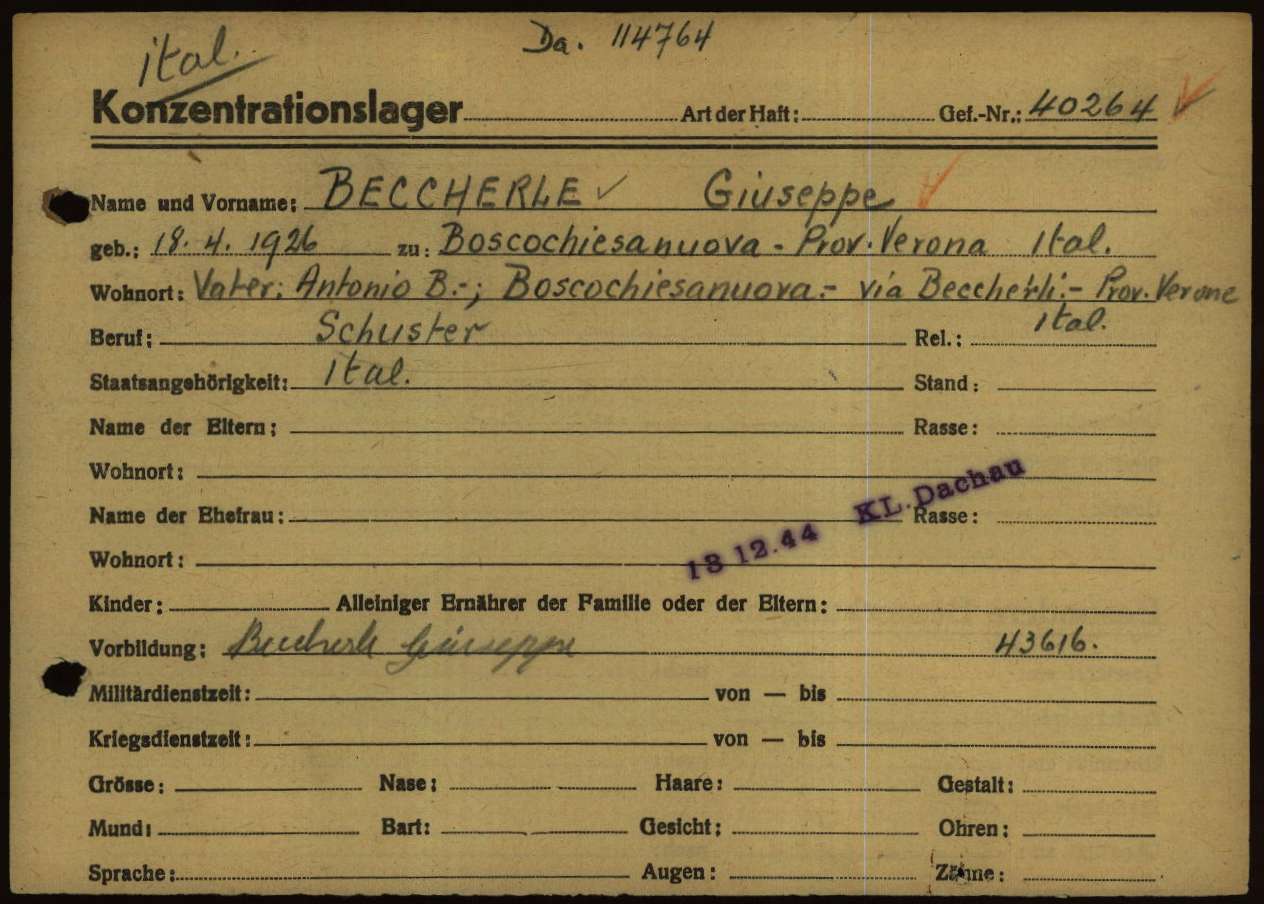 ital. Da. 114764
Konzentrationslager Art der Haft: Gef.-Nr.: 40264
Name und Vorname: BECCHERLE Giuseppe
geb.: 18. 4. 1926 zu: Boscochiesanuova - Prov. Verona Ital.
Wohnort: Vater: Antonio B.-; Boscochiesanuova.- via Beccherli.- Prov. Verone
Ital.
Beruf: Schuster Rel.:
Staatsangehörigkeit: Ital. Stand:
Name der Eltern: Rasse:
Wohnort:
KL. Dachau
Name der Ehefrau: Rasse:
18 12.44
Wohnort:
Kinder: Alleiniger Ernährer der Familie oder der Eltern:
Vorbildung: Beccherle Giuseppe 43616.
Militärdienstzeit: von — bis
Kriegsdienstzeit: von — bis
Grösse: Nase: Haare: Gestalt:
Mund: Bart: Gesicht: Ohren:
Sprache: Augen: Zähne: